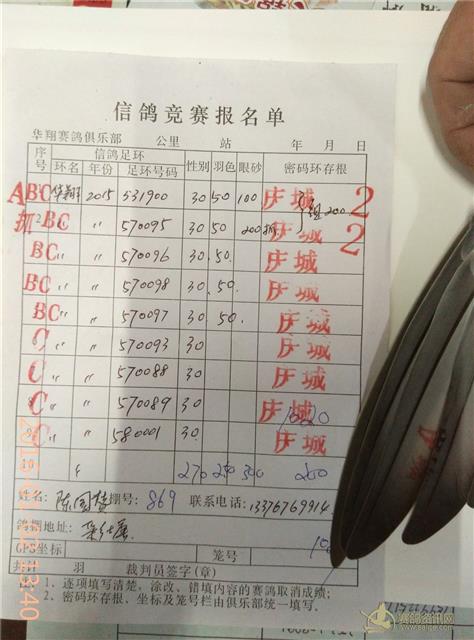 信鸽竞赛报名单
华翔赛鸽俱乐部 公里 站 年 月 日
序号 信鸽足环 性别 羽色 眼砂 密码环存根
环名 年份 足环号码
ABC 华翔 2015 531900 30 50 100 庆城 200 2
抓 2 BC 〃 570095 30 50 200 庆城 2
BC 〃 〃 570096 30 50 庆城
BC 〃 〃 570098 30 50 庆城
BC 〃 〃 570097 30 50 庆城
C 〃 〃 570093 30 庆城
C 〃 〃 570088 30 庆城
C 〃 〃 570089 30 庆城
C 〃 〃 580001 30 庆城
270 250 300 200
姓名: 陈国 棚号: 869 联系电话: 13376769914
鸽棚地址:
GPS坐标 笼号
共计 羽 裁判员签字(章)
注: 1、逐项填写清楚,涂改、错填内容的赛鸽取消成绩;
2、密码环存根、坐标及笼号栏由俱乐部统一填写。
13:40
赛鸽资讯网